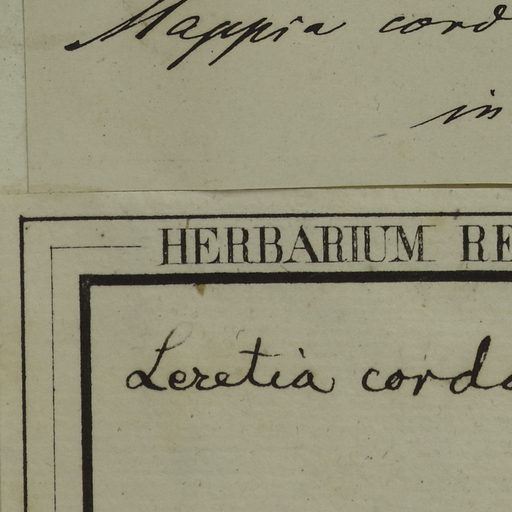 Mappia cord
in
HERBARIUM RE
Leretia corda